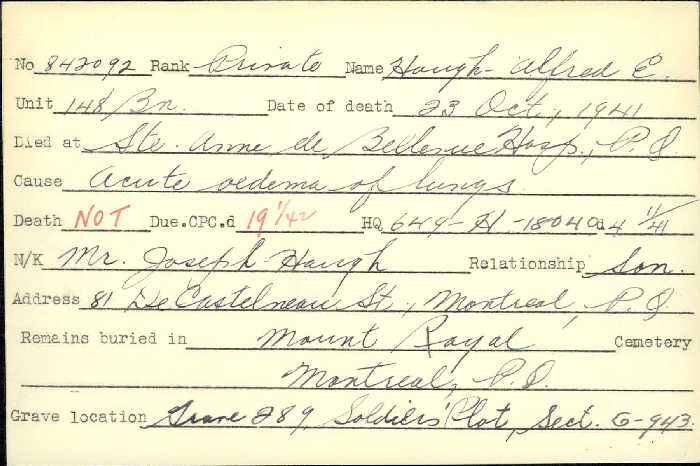 No 842092 Rank Private Name Haugh - Alfred E.
Unit 148 Bn. Date of death 23 Oct., 1941
Died at Ste. Anne de Bellevue Hosp., P.Q.
Cause Acute oedema of lungs.
Death NOT Due.CPC.d 19 1/42 HQ 649-H-18040 d 4 11/41
N/K Mr. Joseph Haugh Relationship Son.
Address 81 De Castelneau St., Montreal, P.Q.
Remains buried in Mount Royal Cemetery
Montreal, P.Q.
Grave location Grave 289, Soldiers' Plot, Sect. G-943.